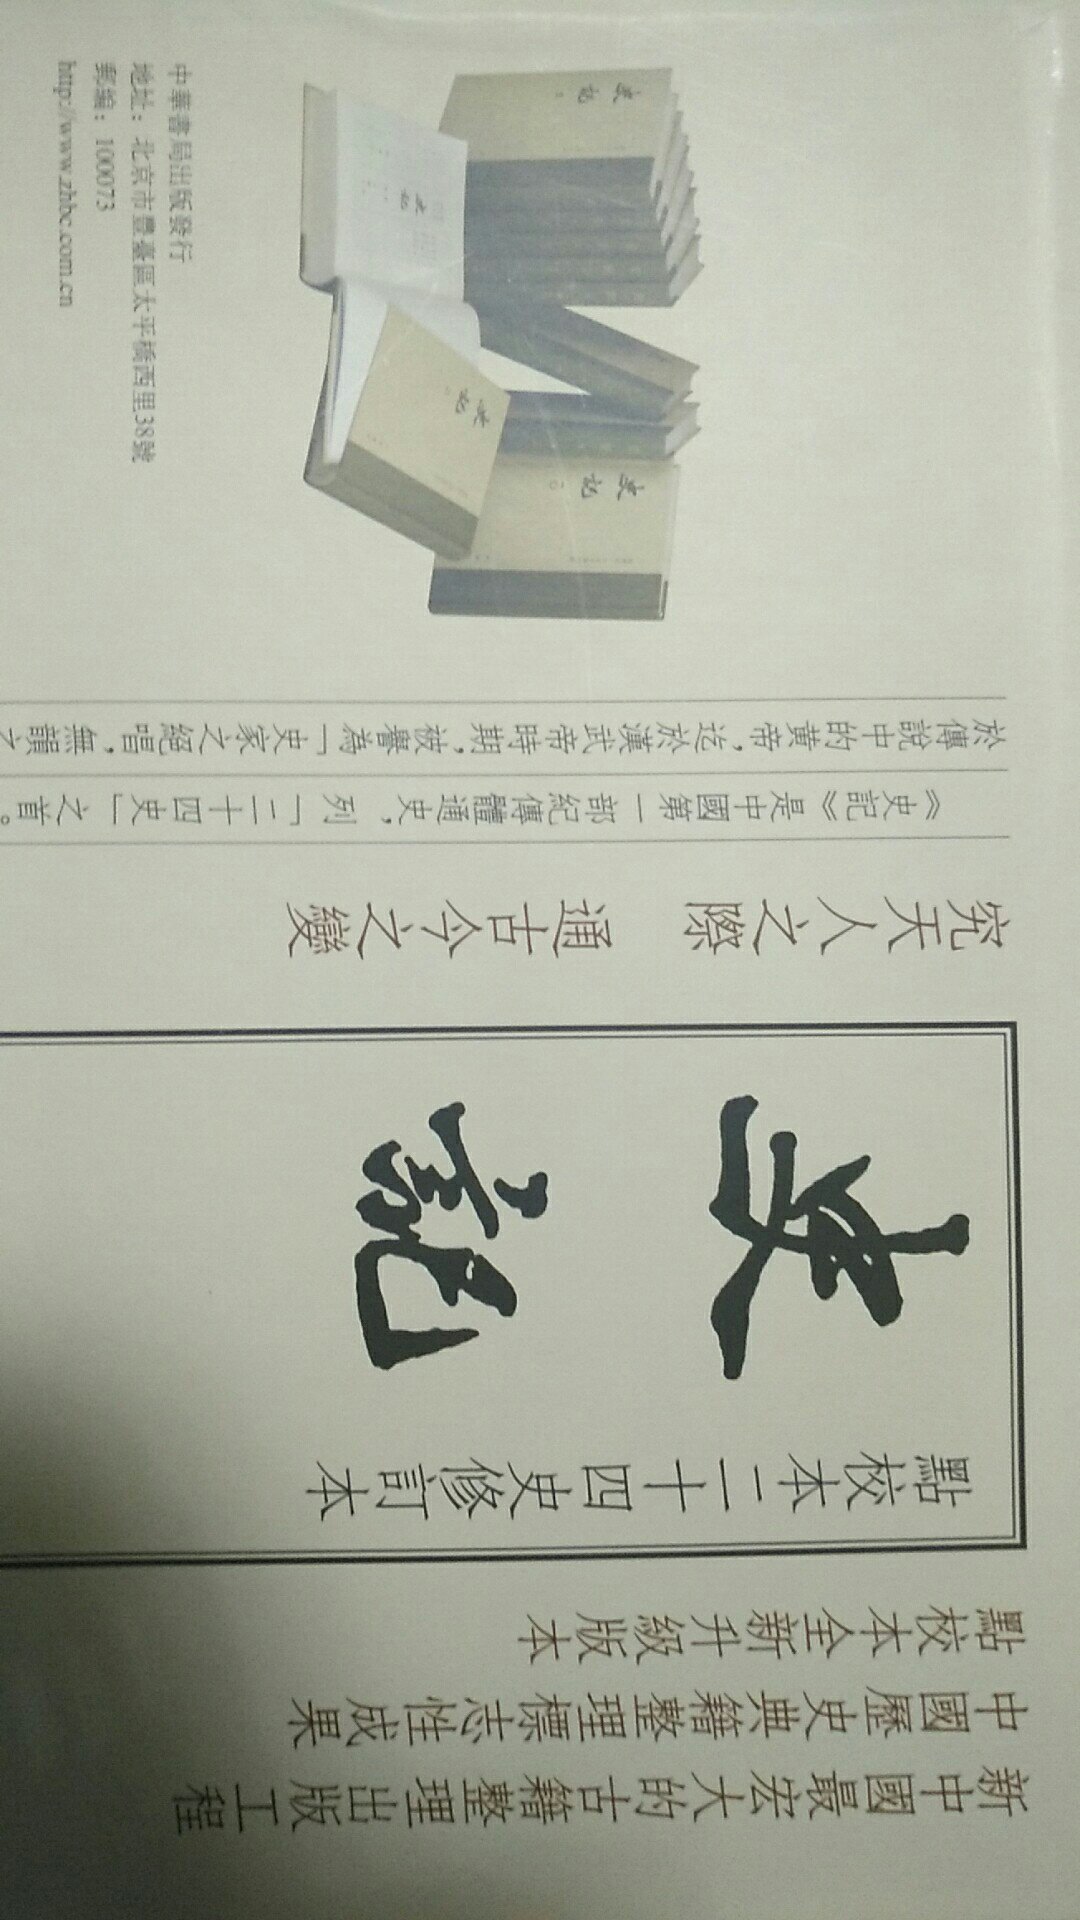 新中國最宏大的古籍整理出版工程
中國歷史典籍整理標志性成果
點校本全新升級版本
點校本二十四史修訂本
史記
究天人之際 通古今之變
《史記》是中國第一部紀傳體通史，列「二十四史」之首。
於傳說中的黃帝，迄於漢武帝時期，被譽為「史家之絕唱，無韻之
史記
史記
史記
史記
中華書局出版發行
地址：北京市豐臺區太平橋西里38號
郵編：100073
http://www.zhbc.com.cn